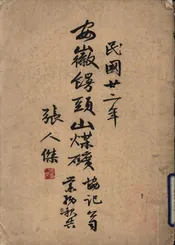 民國廿二年
安徽饅頭山煤礦
協記公司
業務報告
張人傑